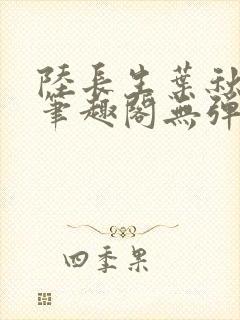 陸長生葉秋
筆趣閣無彈
四季果